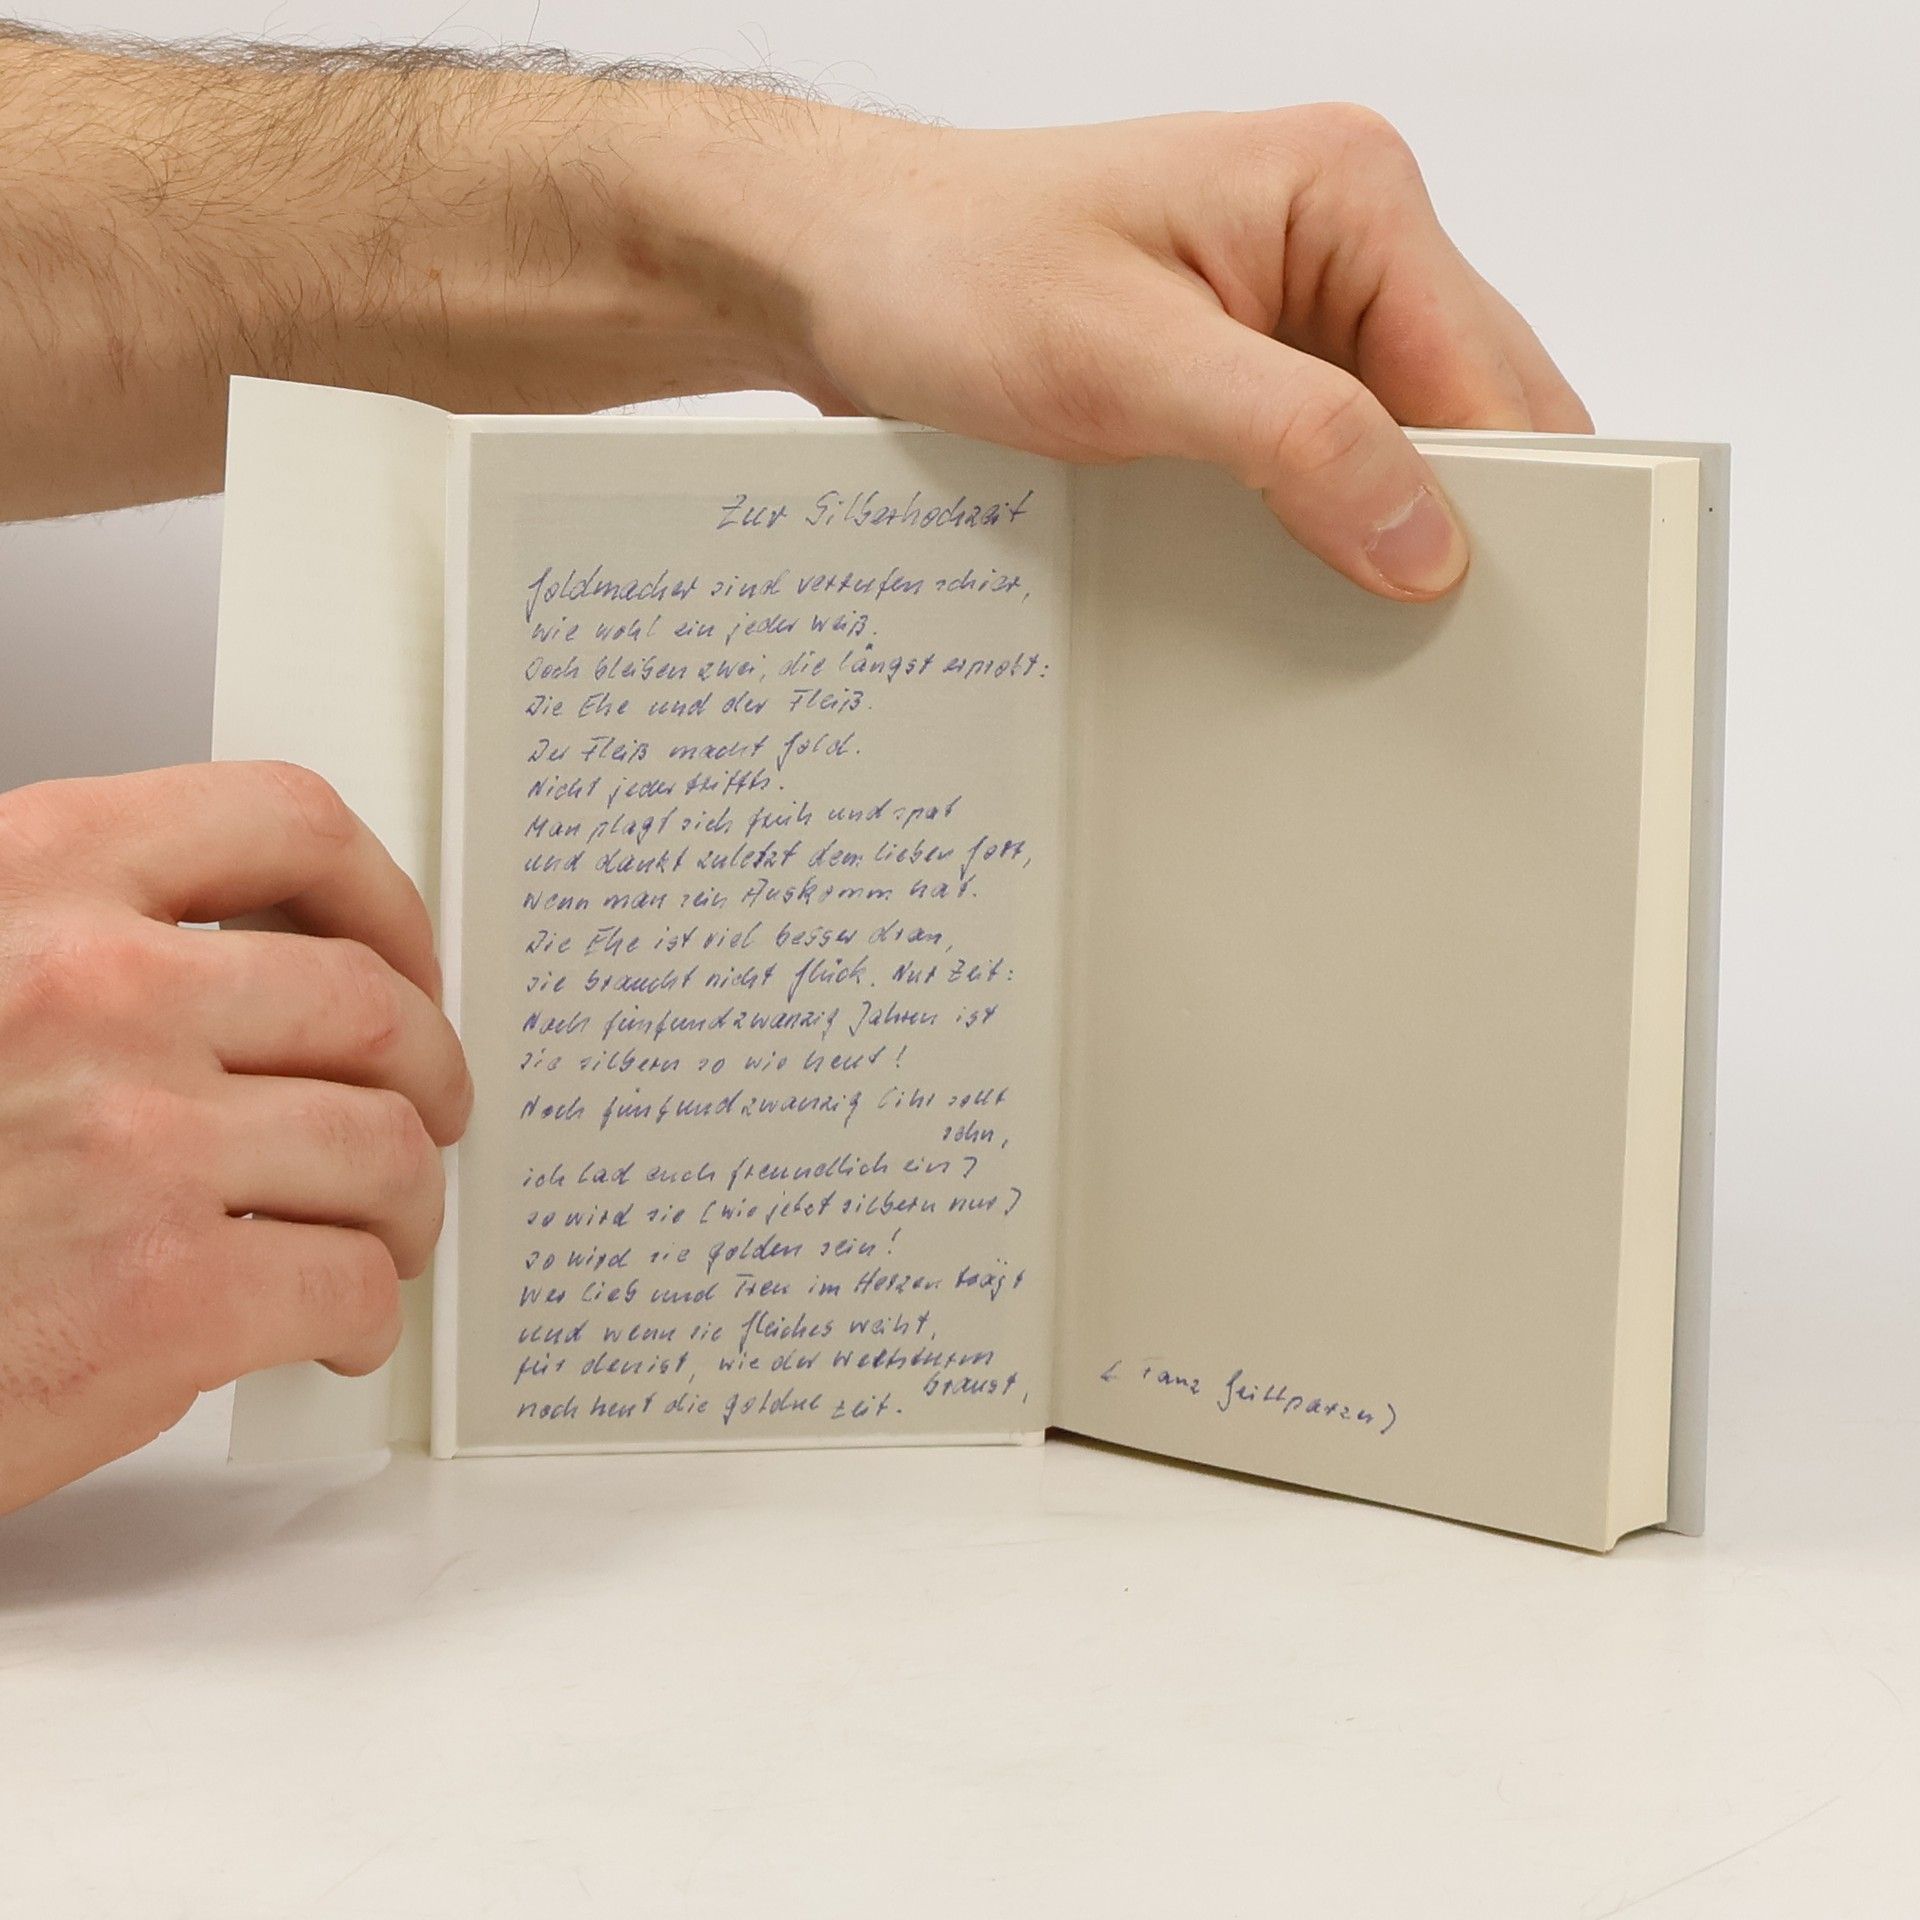 Zur Silberhochzeit
Goldmacher sind verrufen schier,
wie wohl ein jeder weiß.
Doch bleiben zwei, die längst erprobt:
Die Ehe und der Fleiß.
Der Fleiß macht Gold.
Nicht jeder triffts.
Man plagt sich früh und spat
und dankt zuletzt dem lieben Gott,
Wenn man sein Auskomm hat.
Die Ehe ist viel besser dran,
sie braucht nicht Glück. Nur Zeit:
Nach fünfundzwanzig Jahren ist
sie silbern so wie heut!
Nach fünfundzwanzig (ihr sollt
sehn,
ich lad euch freundlich ein)
so wird sie (wie jetzt silbern nur)
so wird sie golden sein!
Wer Lieb und Treu im Herzen trägt
und wenn sie Gleiches weiht,
für den ist, wie der Weltsturm
braust,
noch heut die goldne Zeit.
(Franz Grillparzer)